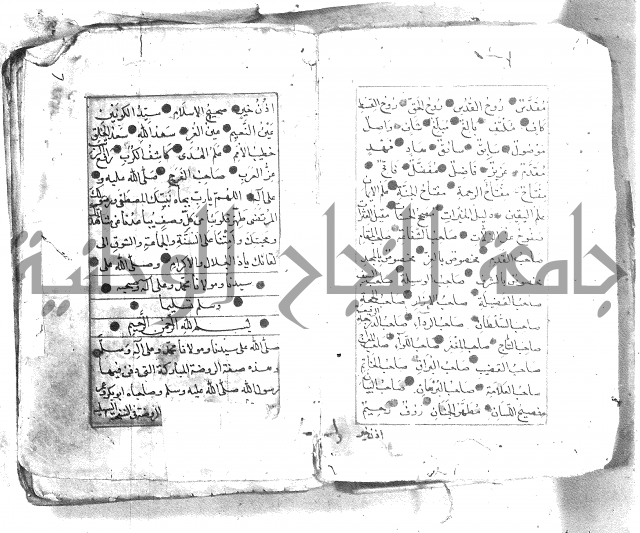 مقدس روح القدس روح الحق روح القسط
كاف مكتف بالغ مبلغ شاف واصل
موصول سابق سائق هاد مهد
مقدم عزيز فاضل مفضل فاتح
مفتاح مفتاح الرحمة مفتاح الجنة علم الايمان
علم اليقين دليل الخيرات مصحح الحسنات مقيل العثرات
صفوح عن الزلات صاحب الشفاعة صاحب المقام
صاحب القدم مخصوص بالعز مخصوص بالمجد
مخصوص بالشرف صاحب الوسيلة صاحب السيف
صاحب الفضيلة صاحب الازار صاحب الحجة
صاحب السلطان صاحب الرداء صاحب الدرجة الرفيعة
صاحب التاج صاحب المغفر صاحب اللواء صاحب المعراج
صاحب القضيب صاحب البراق صاحب الخاتم
صاحب العلامة صاحب البرهان صاحب البيان
فصيح اللسان مطهر الجنان رؤف رحيم
اذن خير
اذن خير صحيح الاسلام سيد الكونين
عين النعيم عين الغر سعد الله سعد الخلق
خطيب الامم علم الهدى كاشف الكرب رافع الرتب
عز العرب صاحب الفرج صلى الله عليه و
على آله اللهم يارب بجاه نبيك المصطفى ورسولك
المرتضى طهر قلوبنا من كل وصف يباعدنا عن مشاهدتك
ومحبتك وامتنا على السنة والجماعة والشوق الى
لقائك ياذا الجلال والاكرام وصلى الله على
سيدنا ومولانا محمد وعلى آله وصحبه
وسلم تسليما
بسم الله الرحمن الرحيم
صلى الله على سيدنا ومولانا محمد وعلى آله وسلم
وهذه صفة الروضة المباركة التي دفن فيها
رسول الله صلى الله عليه وسلم وصاحباه ابو بكر وعمر
جامعة النجاح الوطنية